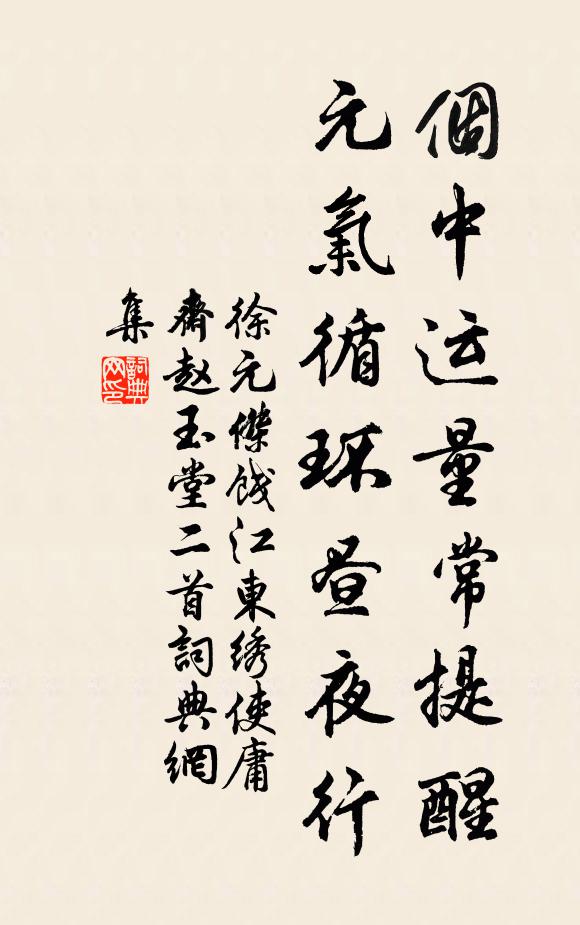 個中运量常提醒
元氣循环昼夜行
徐元傑餞江東绣使庸
齋赵玉堂二首詞典網
集
詞典网印